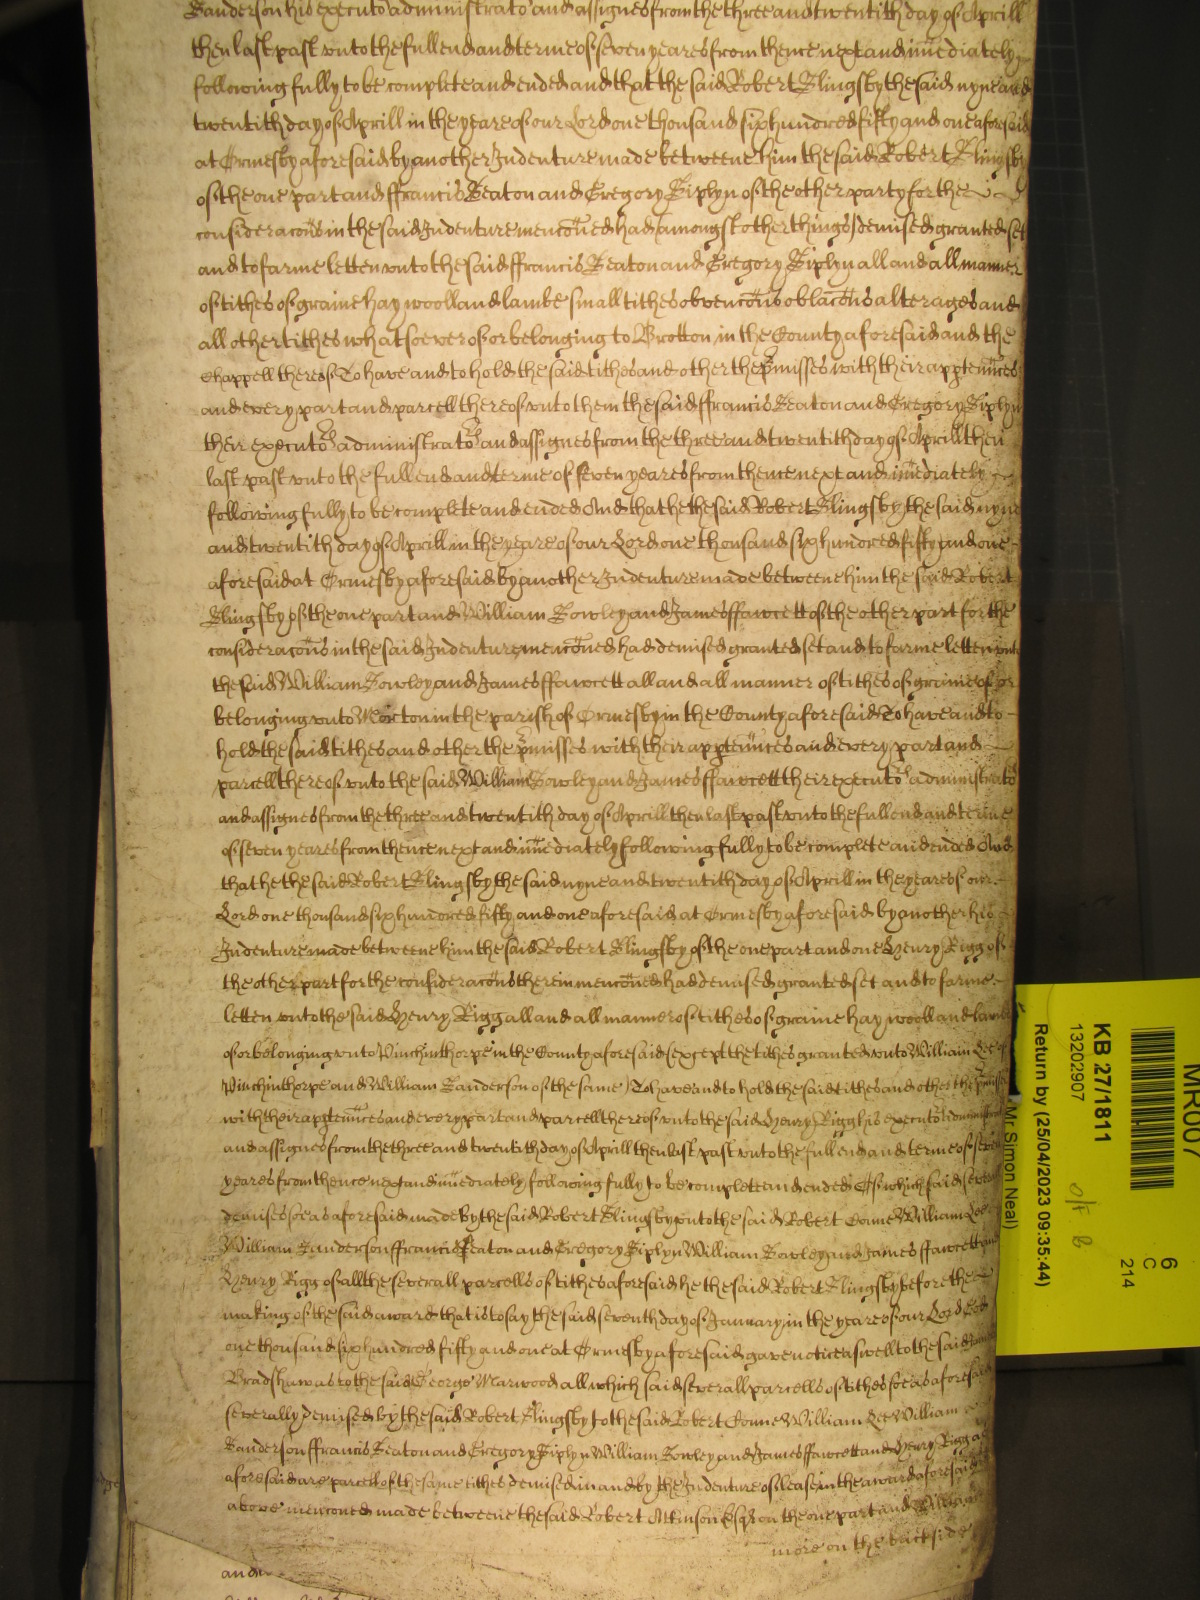 Sanderson his executo administrato and assignes from the three and twentith day of Aprill
then last past vnto the full end and terme of seven yeares from thence next and imediately
following fully to be complete and ended and that the said Robert Slingsby the said nyne and
twentith day of Aprill in the yeare of our Lord one thousand six hundred fifty and one aforesaid
at Ormesby aforesaid by another Indenture made betweene him the said Robert Slingsby
of the one part and ffrancis Seaton and Gregory Siplyn of the other party for the
consideracons in the said Indenture menconed had amongst other things demised granted set
and to farme letten vnto the said ffrancis Seaton and Gregory Siplyn all and all manner
of tithes of graine hay wooll and lambe small tithes obvencons oblacons alterages and
all other tithes whatsoever of or belonging to Brotton in the County aforesaid and the
Chappell thereof To have and to hold the said tithes and other the pmisses with their apptennces
and every part and parcell thereof vnto them the said ffrancis Seaton and Gregory Siplyn
their executo administrato and assignes from the three and twentith day of Aprill then
last past vnto the full end and terme of seven yeares from thence next and imediately
following fully to be complete and ended And that he the said Robert Slingsby the said nyne
and twentith day of Aprill in the yeare of our Lord one thousand six hundred fifty and one
aforesaid at Ormesby aforesaid by another Indenture made betweene him the said Robert
Slingsby of the one part and William Rowley and James ffawcett of the other part for the
consideracons in the said Indenture menconed had demised granted set and to farme letten vnto
the said William Rowley and James ffawcett all and all manner of tithes of graine of or
belonging vnto Morton in the parish of Ormesby in the County aforesaid To have and to
hold the said tithes and other the pmisses with their apptennces and every part and
parcell thereof vnto the said William Rowley and James ffawcett their executo administrato
and assignes from the three and twentith day of Aprill then last past vnto the full end and terme
of seven yeares from thence next and imediately following fully to be complete and ended And
that he the said Robert Slingsby the said nyne and twentith day of Aprill in the yeare of our
Lord one thousand six hundred fifty and one aforesaid at Ormesby aforesaid by another his
Indenture made betweene him the said Robert Slingsby of the one part and one Henry Rigg of
the other part for the consideracons therein menconed had demised granted set and to farme
letten vnto the said Henry Rigg all and all manner of tithes of graine hay wooll and lambe
of or belonging vnto Pinchinthorpe in the County aforesaid (except the tithes granted vnto William Lee of
Pinchinthorpe and William Sanderson of the same) To have and to hold the said tithes and other the pmisses
with their apptennces and every part and parcell thereof vnto the said Henry Rigg his executo administrato
and assignes from the three and twentith day of Aprill then last past vnto the full end and terme of seven
yeares from thence next and imediately following fully to be complete and ended Of which said severall
demises soe as aforesaid made by the said Robert Slingsby vnto the said Robert Conne William Lee
William Sanderson ffrancis Seaton and Gregory Siplyn William Rowley and James ffawcett and
Henry Rigg of all the severall parcells of tithes aforesaid he the said Robert Slingsby before the
making of the said award that is to say the said seventh day of January in the yeare of our Lord God
one thousand six hundred fifty and one at Ormesby aforesaid gave notice aswell to the said James
Bradshaw as to the said George Marwood all which said severall parcells of tithes soe as aforesaid
severally demised by the said Robert Slingsby to the said Robert Conne William Lee William
Sanderson ffrancis Seaton and Gregory Siplyn William Rowley and James ffawcett and Henry Rigg as
aforesaid are parcell of the same tithes demised in and by the Indenture of lease in the award aforesaid
above menconed made betweene the said Robert Attkinson Esqr on the one part and William
more on the backside
MR007
6
C
214
KB 27/1811
13202907
Return by (25/04/2023 09:35:44)
Mr Simon Neal)